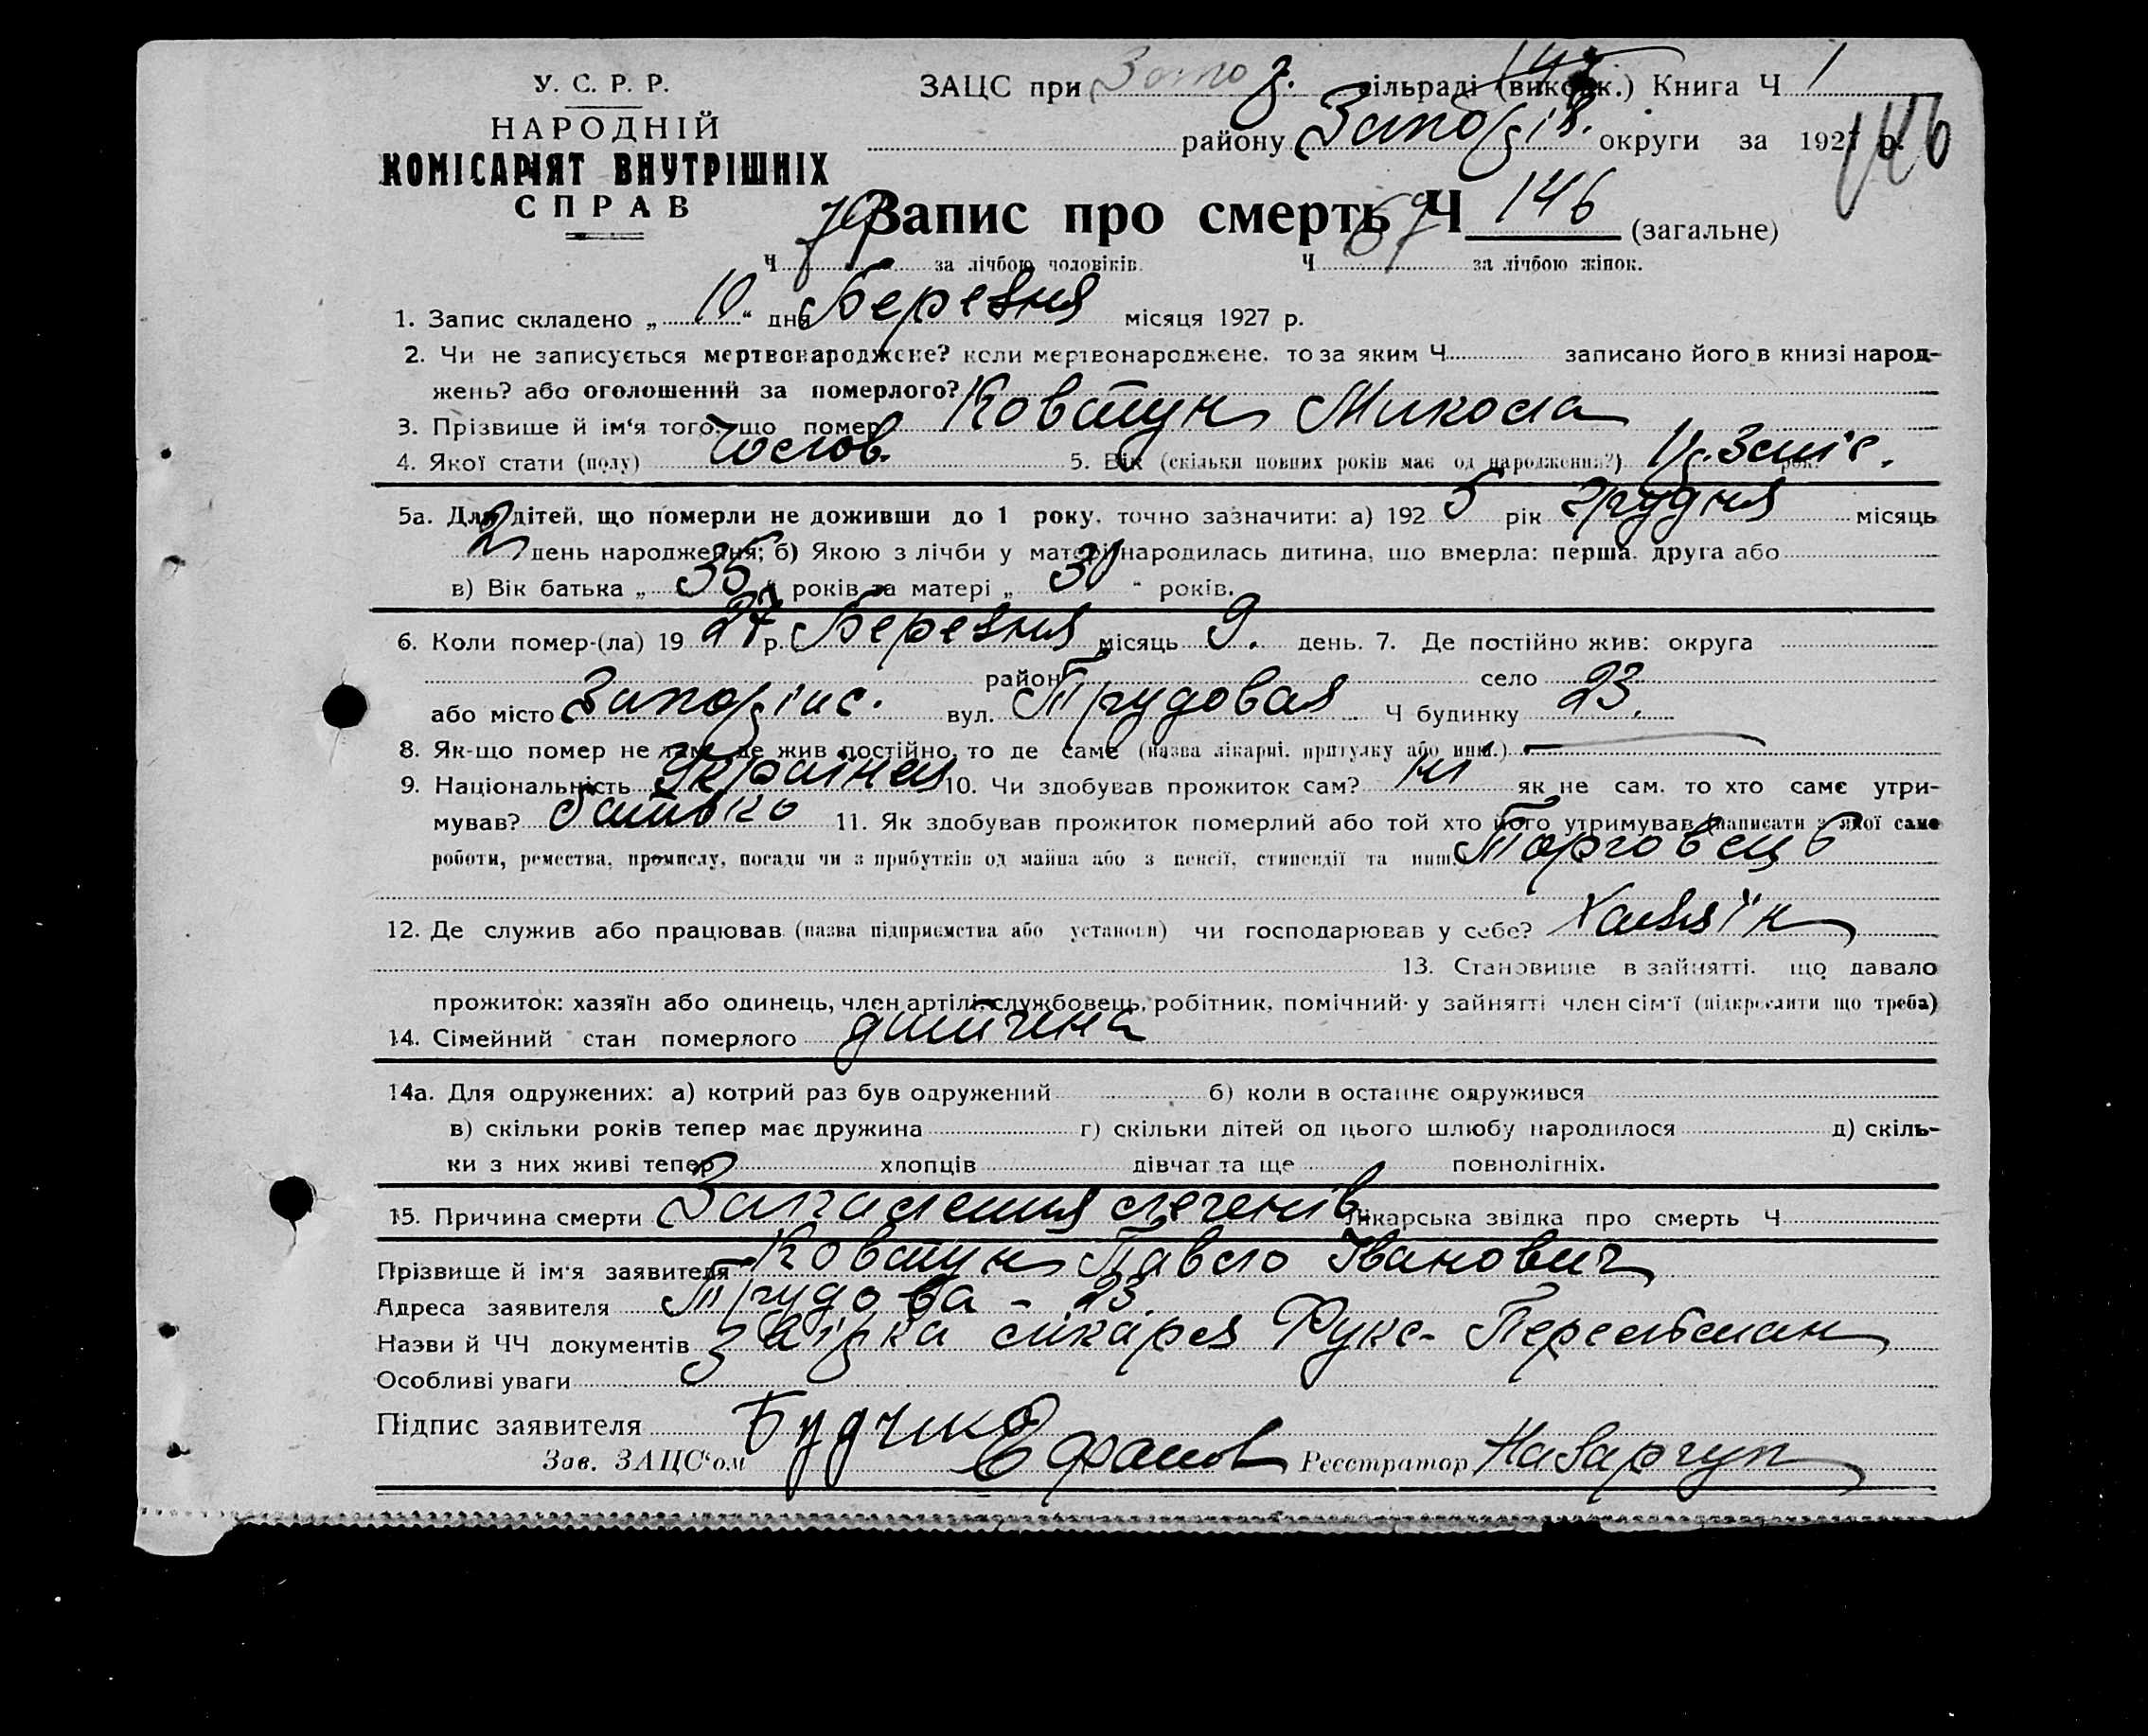 У. С. Р. Р.
НАРОДНІЙ
КОМІСАРІЯТ ВНУТРІШНІХ
СПРАВ
ЗАЦС при Запоз. сільраді (викон.к.) Книга Ч 1
району Запорізів. округи за 1927 р.
146
Запис про смерть Ч 146 (загальне)
Ч за лічбою чоловіків. Ч 69 за лічбою жінок.
1. Запис складено „ 10 “ дня Березня місяця 1927 р.
2. Чи не записується мертвонароджене? коли мертвонароджене, то за яким Ч записано його в книзі народ-
жень? або оголошений за померлого?
3. Прізвище й ім'я того, що помер Ковтун Микола
4. Якої стати (полу) Чолов. 5. Вік (скільки повних років має од народження?) 1 р. 3 міс.
5а. Для дітей, що померли не доживши до 1 року, точно зазначити: а) 1925 рік грудня місяць
2 день народження; б) Якою з лічби у матері народилась дитина, що вмерла: перша, друга або
в) Вік батька „ 35 “ років та матері „ 30 “ років.
6. Коли помер-(ла) 1927 р. Березня місяць 9. день. 7. Де постійно жив: округа
район село
або місто вул. Трудовая Ч будинку 23.
8. Як-що помер не там, де жив постійно, то де саме (назва лікарні, притулку або инш.)
9. Національність 10. Чи здобував прожиток сам? ні як не сам, то хто саме утри-
мував? батько 11. Як здобував прожиток померлий або той хто його утримував (написати з якої саме
роботи, ремества, промислу, посади чи з прибутків од майна або з пенсії, стипендії та инш. Торговець
12. Де служив або працював (назва підприємства або установи) чи господарював у себе? Хазяїн
13. Становище в зайнятті, що давало
прожиток: хазяїн або одинець, член артілі, службовець, робітник, помічний у зайнятті член сім'ї (підкреслити що треба)
14. Сімейний стан померлого дитина
14а. Для одружених: а) котрий раз був одружений б) коли в останнє одружився
в) скільки років тепер має дружина г) скільки дітей од цього шлюбу народилося д) скіль-
ки з них живі тепер хлопців дівчат та ще повнолітніх.
15. Причина смерти Запалення легенів Лікарська звідка про смерть Ч
Прізвище й ім'я заявителя Ковтун Павло Іванович
Адреса заявителя Трудова - 23.
Назви й ЧЧ документів лікаря Фукс-Перельман
Особливі уваги
Підпис заявителя
Зав. ЗАЦС'ом Реєстратор